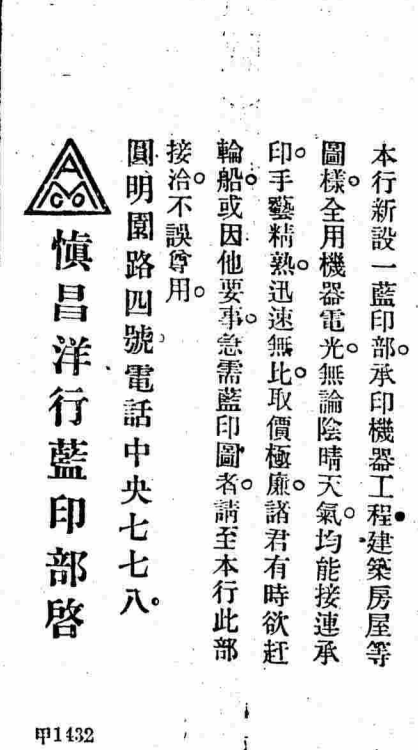 本行新設一藍印部。承印機器工程●建築房屋等
圖樣。全用機器電光。無論陰晴天氣。均能接連承
印。手藝精熟。迅速無比。取價極廉。諸君有時欲赶
輪船。或因他要事。急需藍印圖者。請至本行此部
接洽。不誤尊用。
圓明園路四號。電話中央七七八。
AMCO
慎昌洋行藍印部啓
甲1432